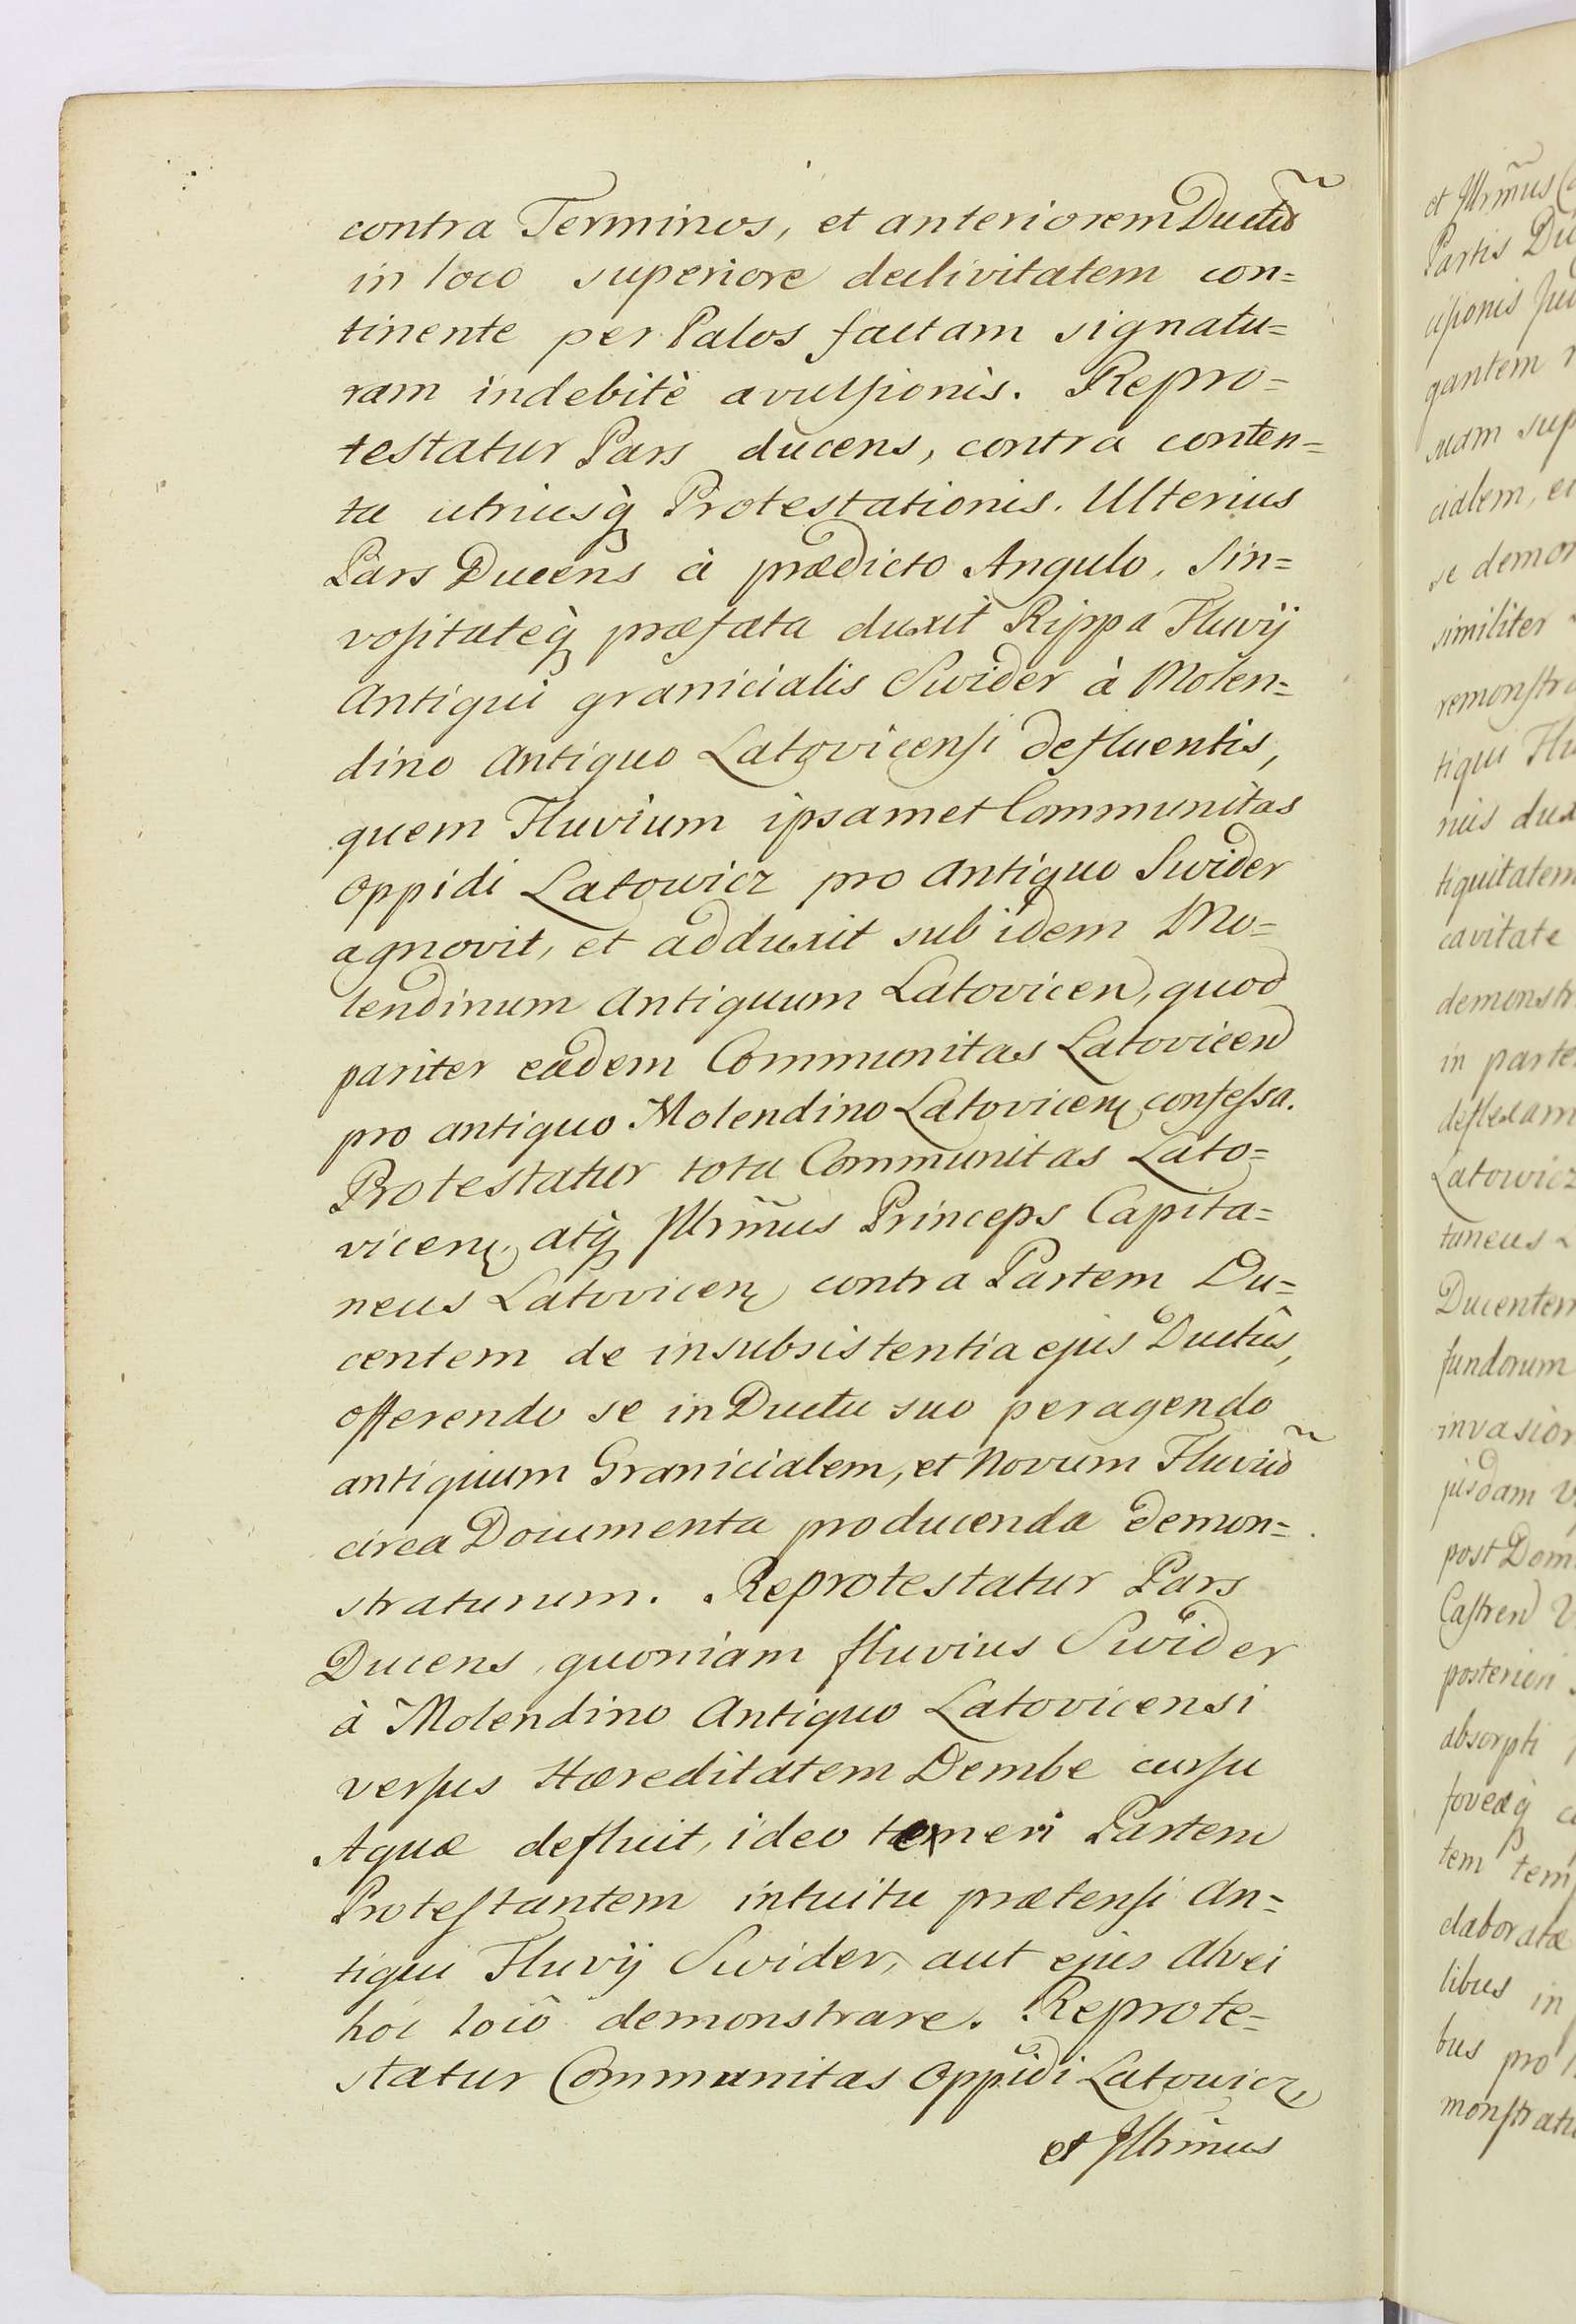 contra Terminos, et anteriorem Ductũ
in loco superiore declivitatem con=
tinente per Palos factam signatu=
ram indebitè avulsionis. Repro=
testatur Pars ducens, contra conten=
ta utriusq̀ Protestationis. Ulterius
Pars Ducens à prædicto Angulo, Sin=
vositateq̀ præfata duxit Rippa Fluvij
Antiqui granicialis Swider à Molen=
dino Antiquo Latovicensi defluentis,
quem Fluvium ipsamet Communitas
Oppidi Latowicz pro Antiquo Swider
agnovit, et adduxit sub idem Mo=
lendinum Antiquum Latovicen, quod
pariter eadem Communitas Latovicen
pro antiquo Molendino Latovicen confessa.
Protestatur tota Communitas Lato=
vicen, atq̀ Illrm̃us Princeps Capita=
neus Latovicen contra Partem Du=
centem de insubsistentia ejus Ductûs,
offerendo se in Ductu suo peragendo
antiquum Granicialem, et Novum Fluviũ
circa Documenta producenda demon=
straturum. Reprotestatur Pars
Ducens, quoniam fluvius Swider
à Molendino Antiquo Latovicensi
versus Hæreditatem Dembe cursu
Aquæ defluit, ideo temeri Partem
Protestantem intuitu prætensi An=
tiqui Fluvij Swider, aut ejus Alvei
hoc locô demonstrare. Reprote=
statur Communitas Oppidi Latowicz,
et Illrm̃us
et Illrm̃us
Partis
gantem
cialem,
similiter
cavitate
in parte
Latowicz
taneus
Ducentem
fundorum
post
absorpti
elaboratæ
libus in
bus pro